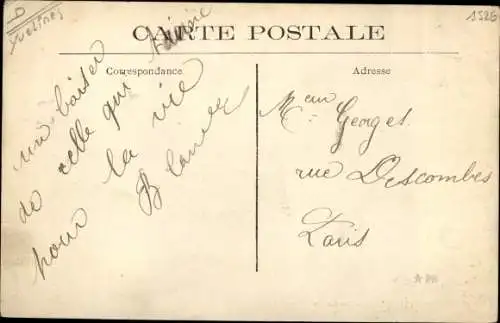 D
Yvelines
1526
CARTE POSTALE
Correspondance
Adresse
un baiser
de celle qui t'aime
pour la vie
Blanche
Mr Georges
rue Descombes
Paris